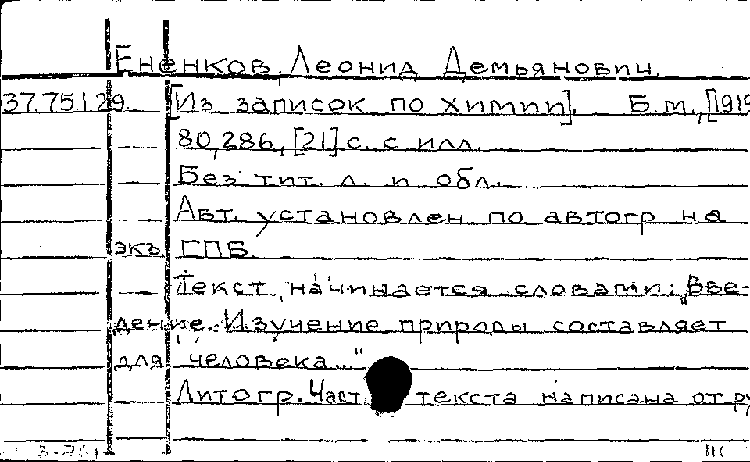 Ененков, Леонид Демьянович.
37.75129. [Из записок по химии]. Б.м., [1915
80,286, [21] с. с илл.
Без тит. л. и обл.
Авт. установлен по автогр на
экз. ГПБ.
Текст начинается словами: "Вве-
дение. Изучение природы составляет
для человека..."
Литогр. Част текста написана от ру